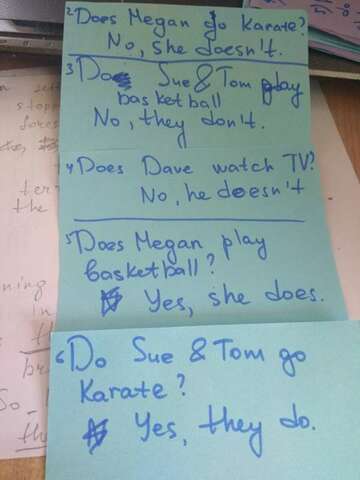 2 Does Megan go karate?
No, she doesn't.
3 Do Sue & Tom play
basketball
No, they don't.
4 Does Dave watch TV?
No, he doesn't
5 Does Megan play
basketball?
Yes, she does.
6 Do Sue & Tom go
Karate?
Yes, they do.